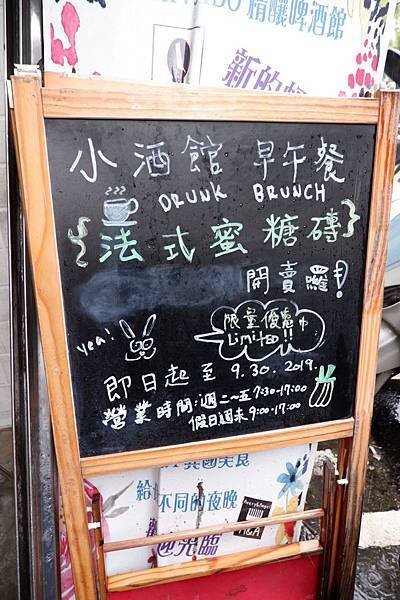 精釀啤酒館
新的
小酒館 早午餐
DRUNK BRUNCH
{法式蜜糖磚}
開賣囉!
yea!
限量優惠中
Limited!!
即日起至 9.30.2019.
營業時間:週二~五 7:30-17:00
假日週末 9:00-17:00
異國美食
給
不同的夜晚
迎光臨
M&A